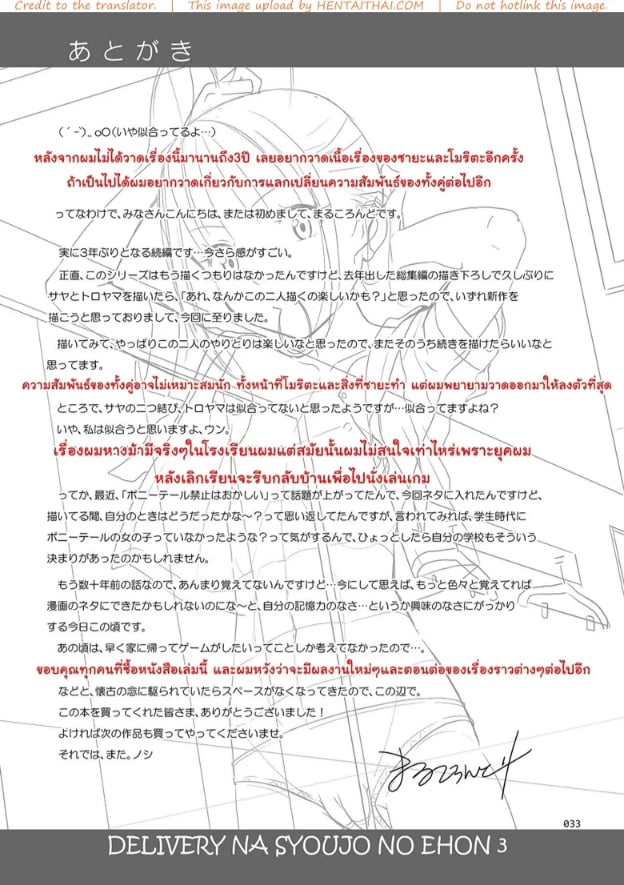 Credit to the translator. | This image upload by HENTAITHAI.COM | Do not hotlink this image.
あとがき
(´-`).oO(いや似合ってるよ…)
หลังจากผมไม่ได้วาดเรื่องนี้มานานถึง3ปี เลยอยากวาดเนื้อเรื่องของซายะและโมริตะอีกครั้ง
ถ้าเป็นไปได้ผมอยากวาดเกี่ยวกับการแลกเปลี่ยนความสัมพันธ์ของทั้งคู่ต่อไปอีก
ってなわけで、みなさんこんにちは、または初めまして、まるころんどです。
実に3年ぶりとなる続編です…今さら感がすごい。
正直、このシリーズはもう描くつもりはなかったんですけど、去年出した総集編の描き下ろしで久しぶりに
サヤとトロヤマを描いたら、「あれ、なんかこの二人描くの楽しいかも?」と思ったので、いずれ新作を
描こうと思っておりまして、今回に至りました。
描いてみて、やっぱりこの二人のやりとりは楽しいなと思ったので、またそのうち続きを描けたらいいなと
思ってます。
ความสัมพันธ์ของทั้งคู่อาจไม่เหมาะสมนัก ทั้งหน้าที่โมริตะและสิ่งที่ซายะทำ แต่ผมพยายามวาดออกมาให้ลงตัวที่สุด
ところで、サヤの二つ結び、トロヤマは似合ってないと思ったようですが…似合ってますよね?
いや、私は似合うと思いますよ、ウン。
เรื่องผมหางม้ามีจริงๆในโรงเรียนผมแต่สมัยนั้นผมไม่สนใจเท่าไหร่เพราะยุคผม
หลังเลิกเรียนจะรีบกลับบ้านเพื่อไปนั่งเล่นเกม
ってか、最近、「ポニーテール禁止はおかしい」って話題が上がってたんで、今回ネタに入れたんですけど、
描いてる間、自分のときはどうだったかな～?って思い返してたんですが、言われてみれば、学生時代に
ポニーテールの女の子っていなかったような?って気がするんで、ひょっとしたら自分の学校もそういう
決まりがあったのかもしれません。
もう数十年前の話なので、あんまり覚えてないんですけど…今にして思えば、もっと色々と覚えてれば
漫画のネタにできたかもしれないのにな～と、自分の記憶力のなさ…というか興味のなさにがっかり
する今日この頃です。
あの頃は、早く家に帰ってゲームがしたいってことしか考えてなかったので…。
ขอบคุณทุกคนที่ซื้อหนังสือเล่มนี้ และผมหวังว่าจะมีผลงานใหม่ๆและตอนต่อของเรื่องราวต่างๆต่อไปอีก
などと、懐古の念に駆られていたらスペースがなくなってきたので、この辺で。
この本を買ってくれた皆さま、ありがとうございました!
よければ次の作品も買ってやってくださいませ。
それでは、また。ノシ
まるころんど
033
DELIVERY NA SYOUJO NO EHON 3